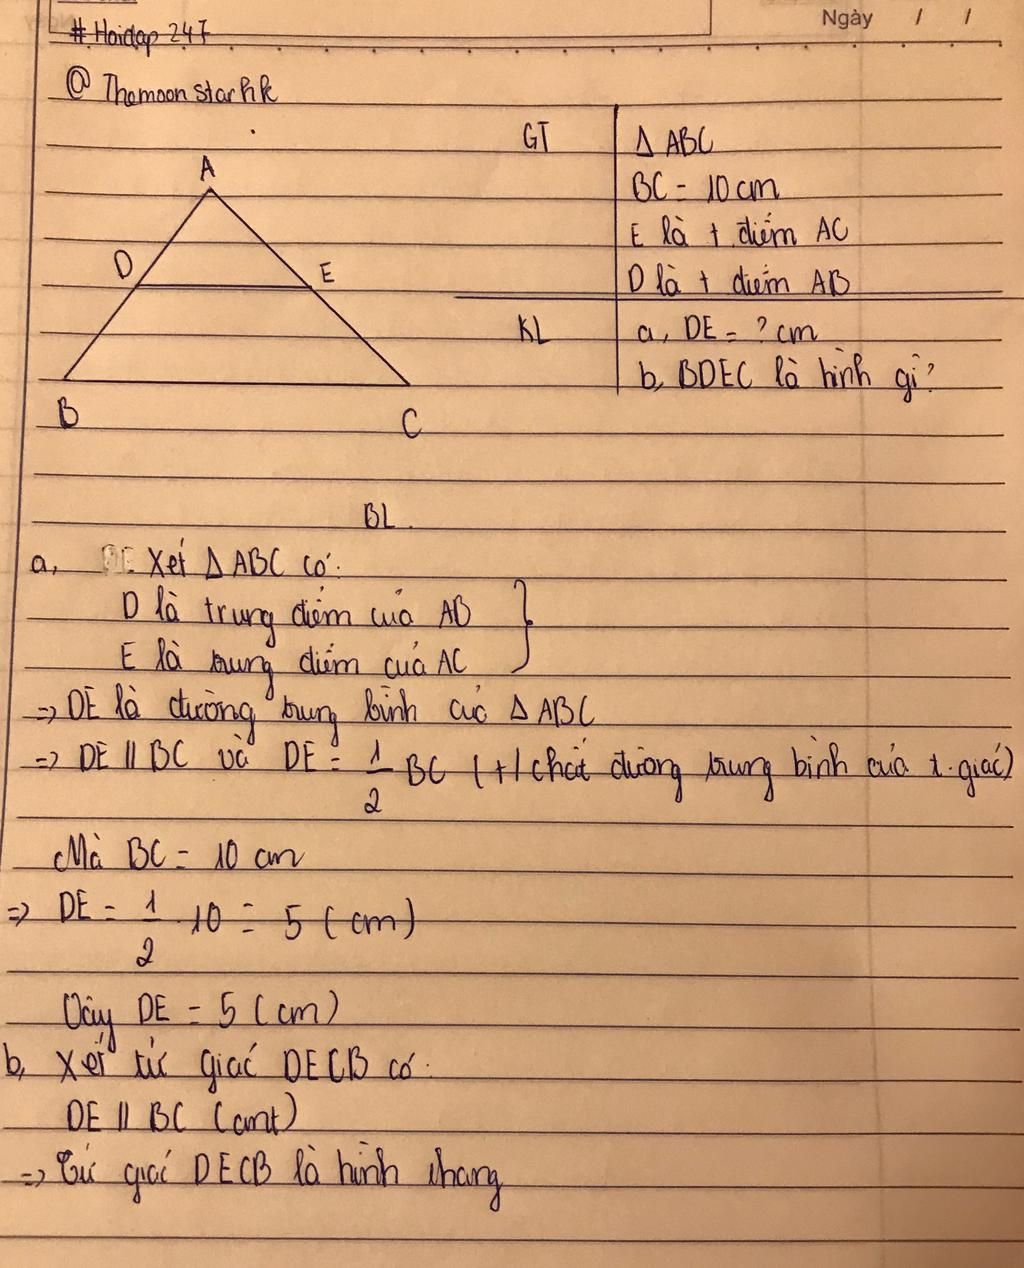 Ngày / /
# Hoidap 247
@ Themoonstarhk
GT
Δ ABC
BC = 10 cm
E là t điểm AC
D là t điểm AB
KL
a, DE = ? cm
b, BDEC là hình gì?
A
D
E
B
C
BL
a, Xét Δ ABC có:
D là trung điểm của AB
E là trung điểm của AC
=> DE là đường trung bình của Δ ABC
=> DE // BC và DE = 1/2 BC (t/chất đường trung bình của t.giác)
Mà BC = 10 cm
=> DE = 1/2 . 10 = 5 (cm)
Vậy DE = 5 (cm)
b, Xét tứ giác DECB có:
DE // BC (cmt)
=> Tứ giác DECB là hình thang